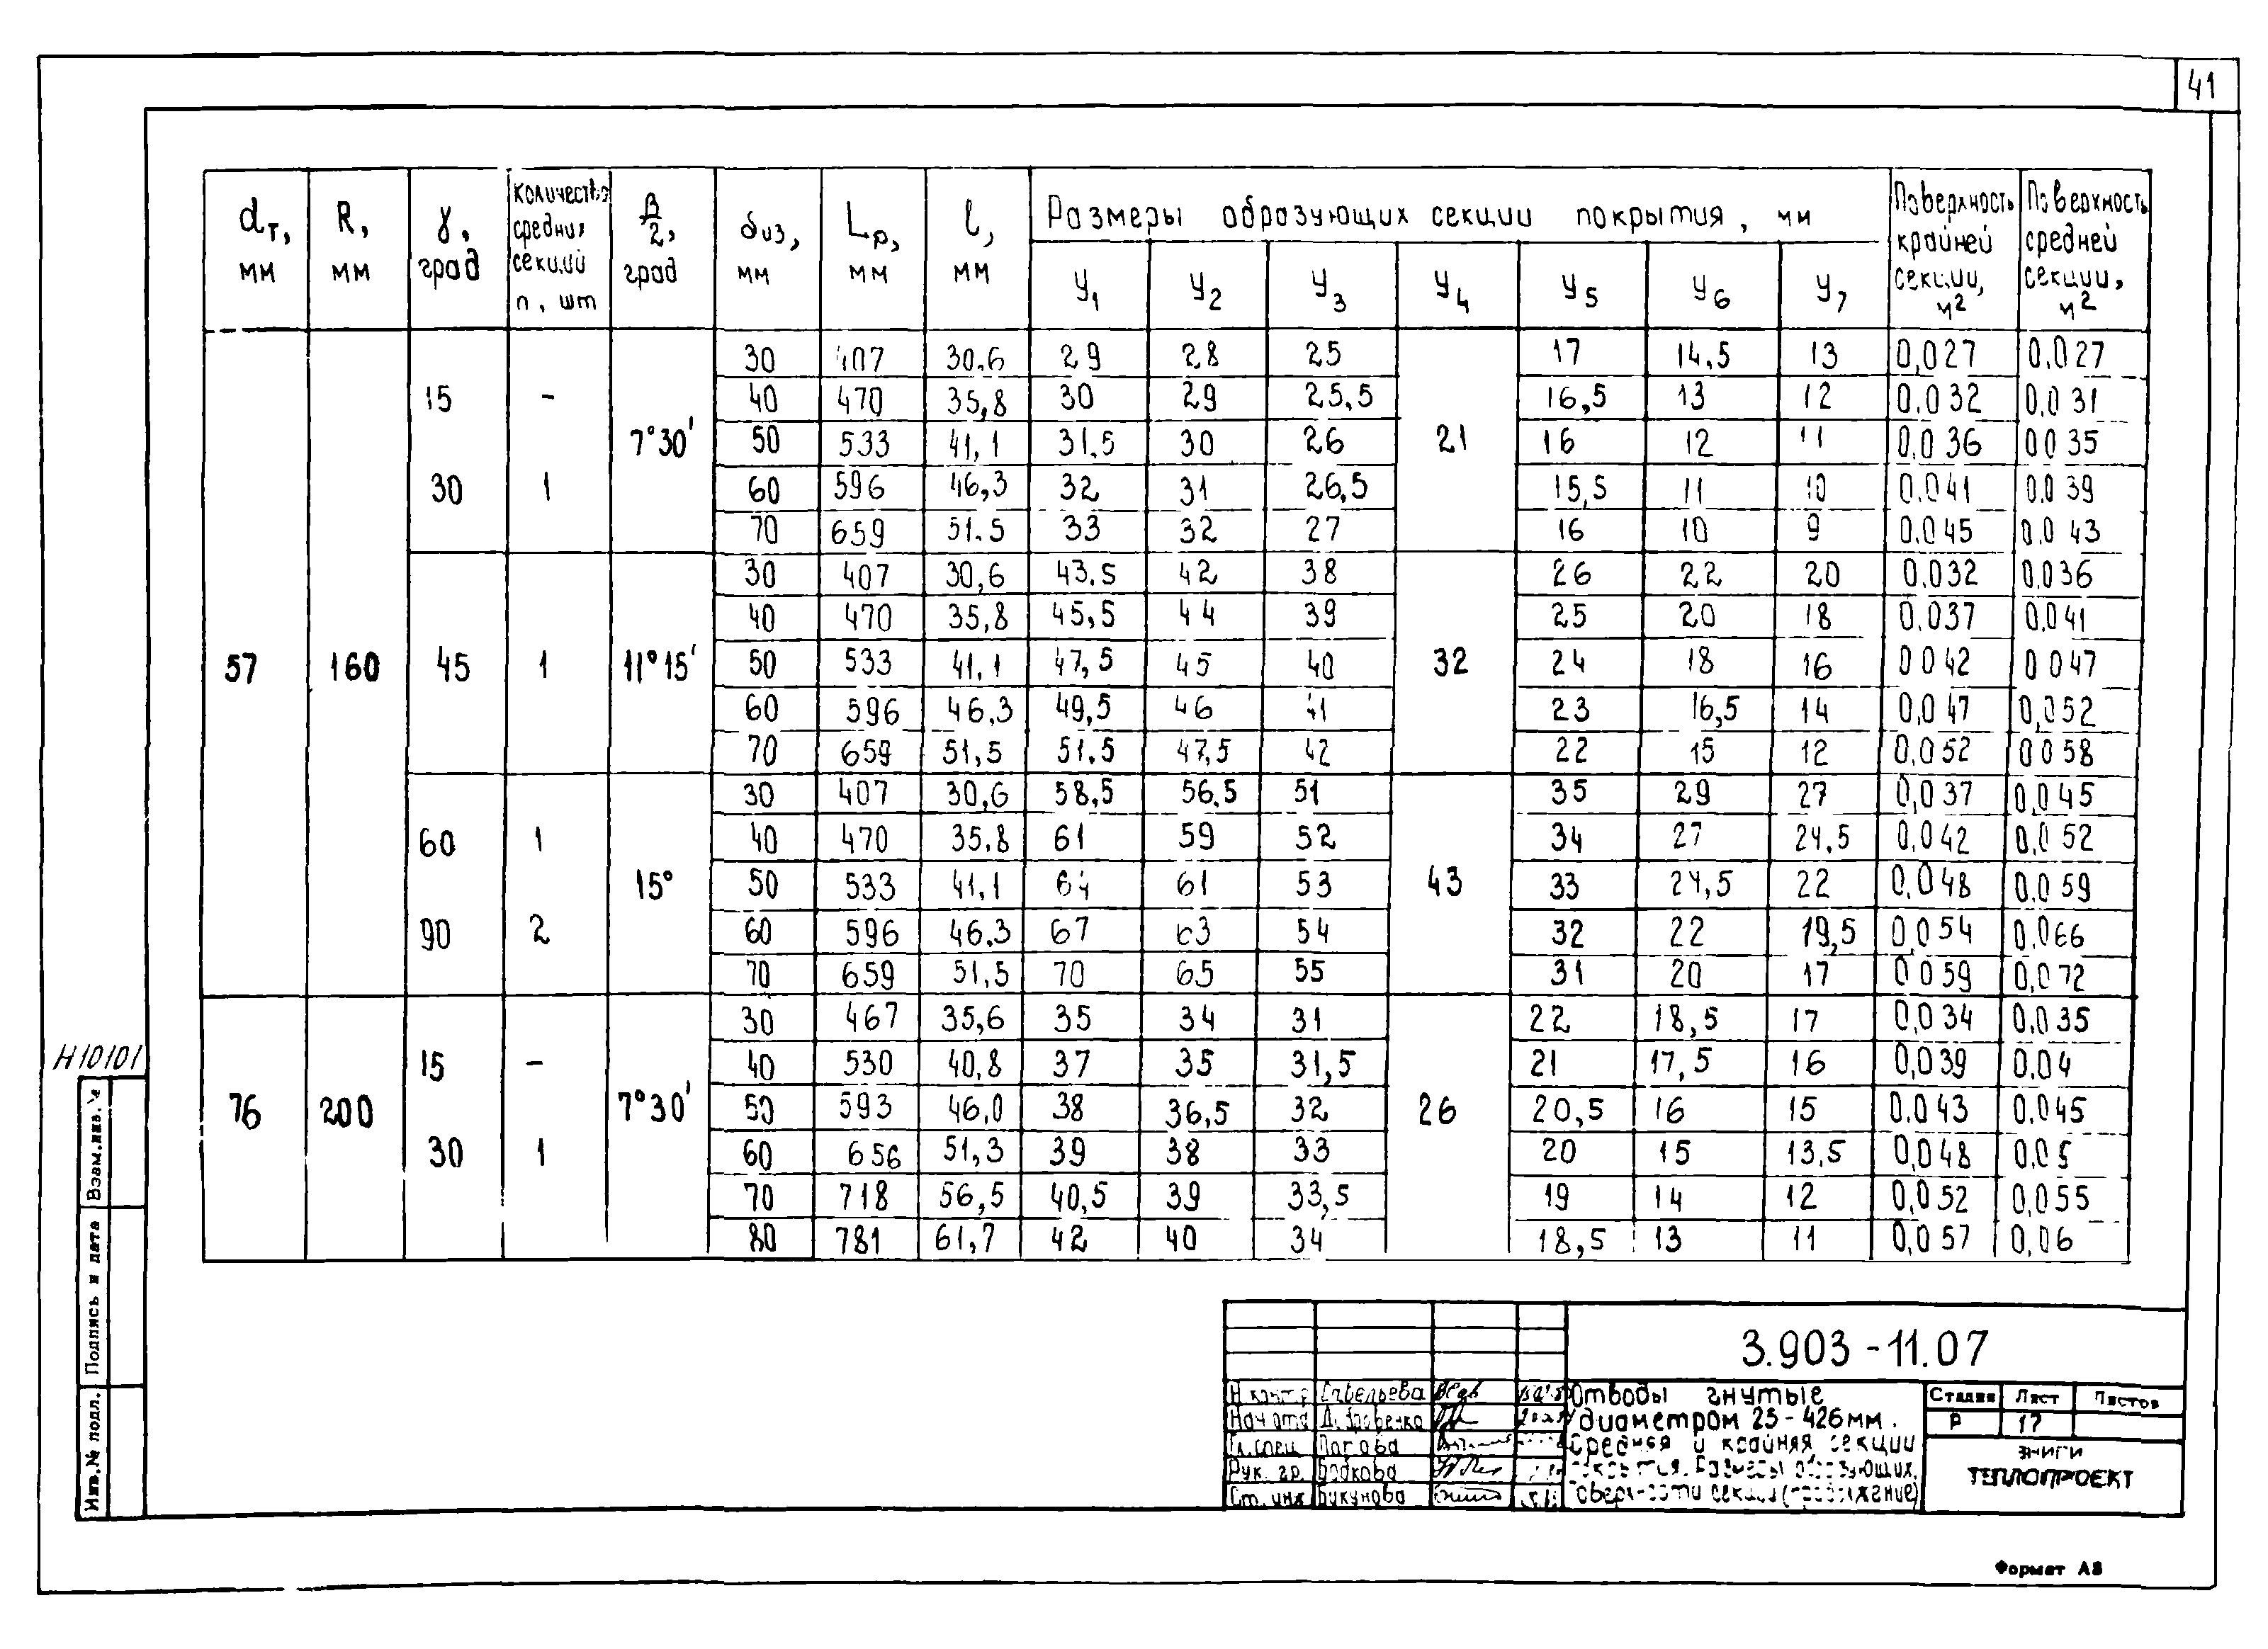 41
dт, мм
R, мм
γ, град
Количество средних секций n, шт
β/2, град
δиз, мм
Lр, мм
l, мм
Размеры образующих секции покрытия, мм
У1 У2 У3 У4 У5 У6 У7
Поверхность крайней секции, м2
Поверхность средней секции, м2
30 407 30,6 29 28 25 17 14,5 13 0,027 0,027
15 - 40 470 35,8 30 29 25,5 16,5 13 12 0,032 0,031
7°30' 50 533 41,1 31,5 30 26 21 16 12 11 0,036 0035
30 1 60 596 46,3 32 31 26,5 15,5 11 10 0.041 0.039
70 659 51.5 33 32 27 16 10 9 0.045 0.043
30 407 30,6 43.5 42 38 26 22 20 0.032 0.036
40 470 35,8 45,5 44 39 25 20 18 0.037 0.041
57 160 45 1 11°15' 50 533 41,1 47,5 45 40 32 24 18 16 0042 0047
60 596 46,3 49,5 46 41 23 16,5 14 0,047 0,052
70 659 51,5 51.5 47,5 42 22 15 12 0,052 0058
30 407 30,6 58,5 56.5 51 35 29 27 0,037 0,045
60 1 40 470 35,8 61 59 52 34 27 24,5 0,042 0,052
15° 50 533 41,1 64 61 53 43 33 24,5 22 0.048 0.059
90 2 60 596 46,3 67 63 54 32 22 19,5 0,054 0.066
70 659 51,5 70 65 55 31 20 17 0059 0,072
30 467 35,6 35 34 31 22 18,5 17 0,034 0.035
15 - 40 530 40,8 37 35 31,5 21 17,5 16 0,039 0.04
76 200 7°30' 50 593 46,0 38 36,5 32 26 20,5 16 15 0.043 0.045
30 1 60 656 51,3 39 38 33 20 15 13.5 0,048 0,05
70 718 56,5 40,5 39 33,5 19 14 12 0,052 0,055
80 781 61,7 42 40 34 18,5 13 11 0,057 0,06
Н10101
Взам.инв.№
Подпись и дата
Инв.№ подл.
3.903-11.07
Н.контр Савельева
Нач отд
Гл.спец Попова
Рук. гр. Бобкова
Ст. инж Букунова
Отводы гнутые
диаметром 25-426мм.
Средняя и крайняя секции
покрытия. Размеры образующих,
поверхности секции (продолжение)
Стадия Лист Листов
Р 17
ВНИПИ
ТЕПЛОПРОЕКТ
Формат А3